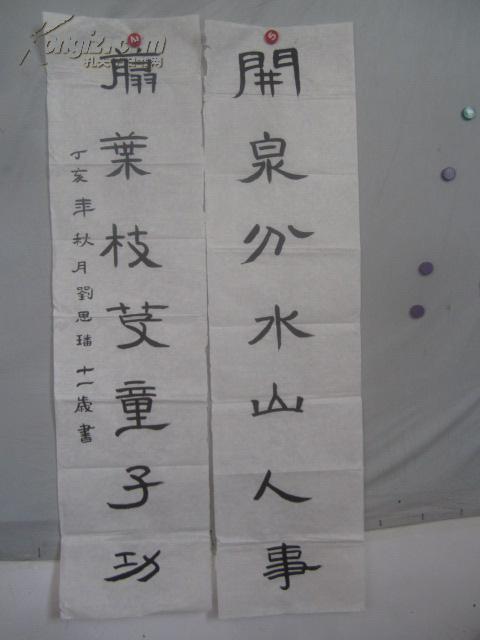 開泉分水山人事
葉枝芟童子功
丁亥年秋月劉思璠十一歲書
Kongfz.com
5
2